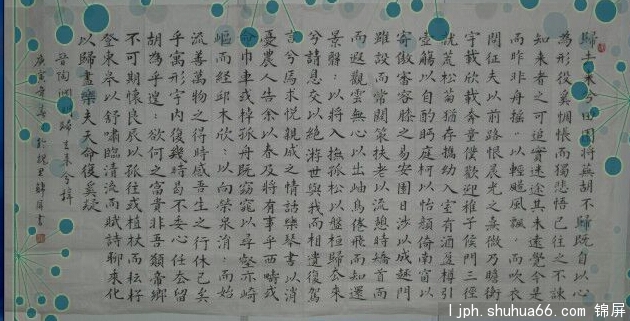 歸去来兮田園將蕪胡不歸既自以心
為形役奚惆悵而獨悲悟已往之不諫
知来者之可追實迷途其未遠覺今是
而昨非舟摇〻以輕颺風飄〻而吹衣
問征夫以前路恨晨光之熹微乃瞻衡
宇載欣載奔僮僕歡迎稚子候門三徑
就荒松菊猶存攜幼入室有酒盈樽引
壺觴以自酌眄庭柯以怡顏倚南窗以
寄傲審容膝之易安園日涉以成趣門
雖設而常關策扶老以流憩時矯首而
遐觀雲無心以出岫鳥倦飛而知還
景翳〻以將入撫孤松以盤桓歸去来
兮請息交以絕游世與我而相遺復駕
言兮焉求悅親戚之情話樂琴書以消
憂農人告余以春及將有事乎西疇或
命巾車或棹孤舟既窈窕以尋壑亦崎
嶇而經丘木欣〻以向榮泉涓〻而始
流善萬物之得時感吾生之行休已矣
乎寓形宇内復幾時曷不委心任去留
胡為乎遑〻欲何之富貴非吾願帝鄉
不可期懷良辰以孤往或植杖而耘耔
登東皋以舒嘯臨清流而賦詩聊乘化
以歸盡樂夫天命復奚疑
晉陶淵明歸去来兮辭
庚寅年春於錦屏書
ljph.shuhua66.com 锦屏